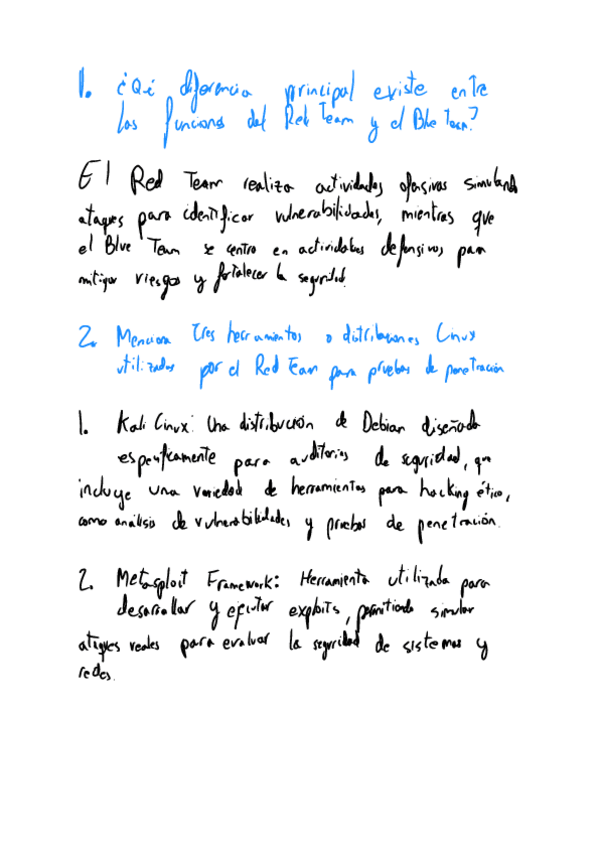 1. ¿Qué diferencia principal existe entre
las funciones del Red Team y el Blue Team?
El Red Team realiza actividades ofensivas simulando
ataques para identificar vulnerabilidades, mientras que
el Blue Team se centra en actividades defensivas para
mitigar riesgos y fortalecer la seguridad.
2. Menciona tres herramientas o distribuciones Linux
utilizadas por el Red Team para pruebas de penetración
1. Kali Linux: Una distribución de Debian diseñada
específicamente para auditorías de seguridad, que
incluye una variedad de herramientas para hacking ético,
como análisis de vulnerabilidades y pruebas de penetración.
2. Metasploit Framework: Herramienta utilizada para
desarrollar y ejecutar exploits, permitiendo simular
ataques reales para evaluar la seguridad de sistemas y
redes.